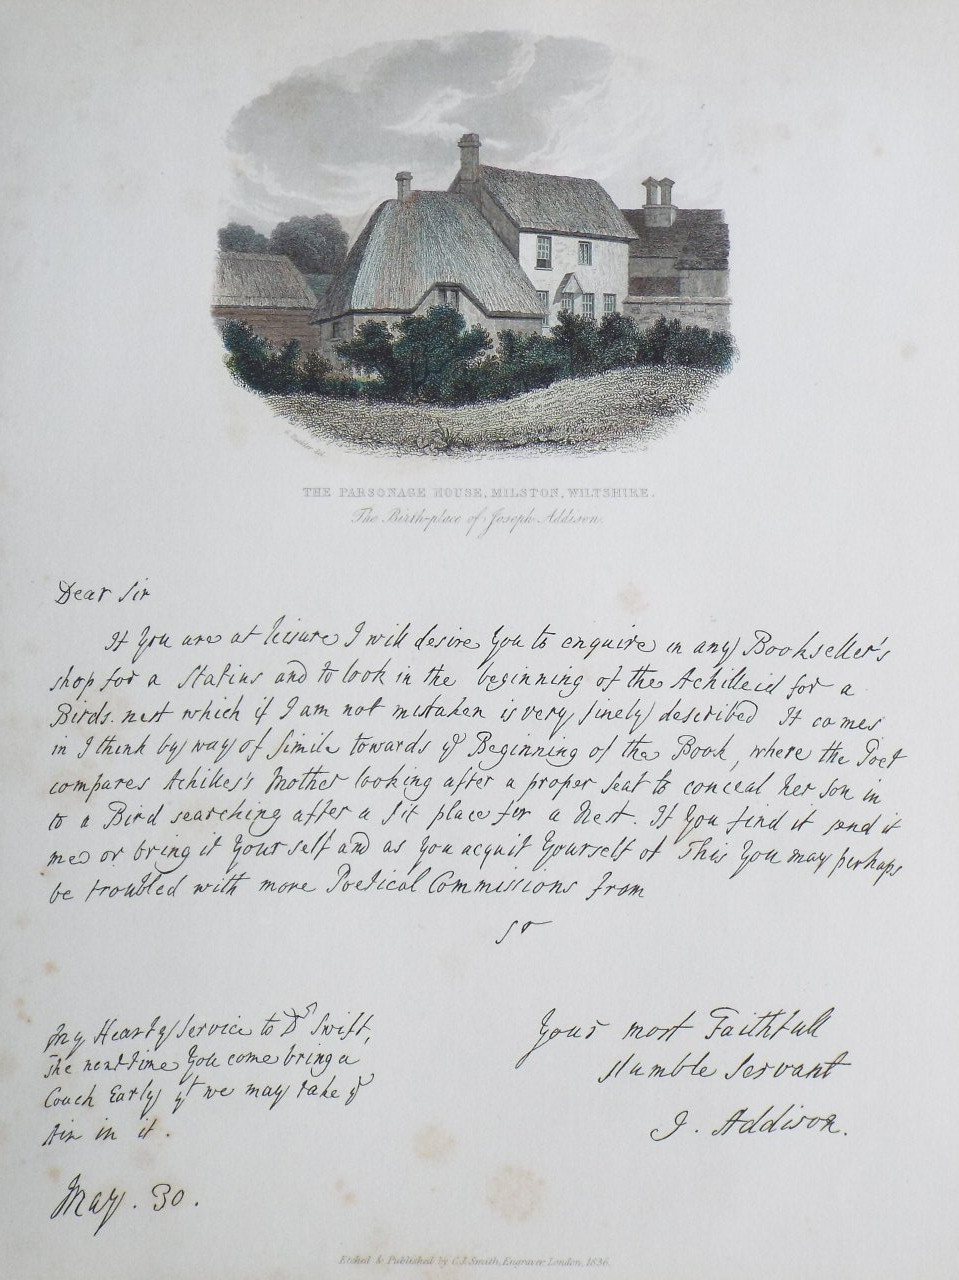 THE PARSONAGE HOUSE, MILSTON, WILTSHIRE.
The Birth-place of Joseph Addison.
Dear Sir
If You are at leisure I will desire You to enquire in any Bookseller's
shop for a Statius and to look in the beginning of the Achilleid for a
Birds-nest which if I am not mistaken is very finely described It comes
in I think by way of Simile towards ye Beginning of the Book, where the Poet
compares Achilles's Mother looking after a proper Seat to conceal her son in
to a Bird searching after a fit place for a Nest. If You find it send it
me or bring it Yourself and as You acquit Yourself of This You may perhaps
be troubled with more Poetical Commissions from
Sr
My Hearty Service to Dr Swift,
The next time You come bring a
Coach Early yt we may take ye
Air in it.
Your most Faithfull
Humble Servant
J. Addison.
May. 30.
Etched & Published by C.J. Smith, Engraver, London, 1836.